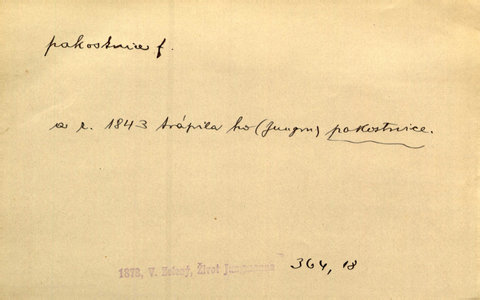 pakostnice f.
a r. 1843 trápila ho (Jungm) pakostnice.
1873, V. Zelený, Život Jungmanna 364, 18